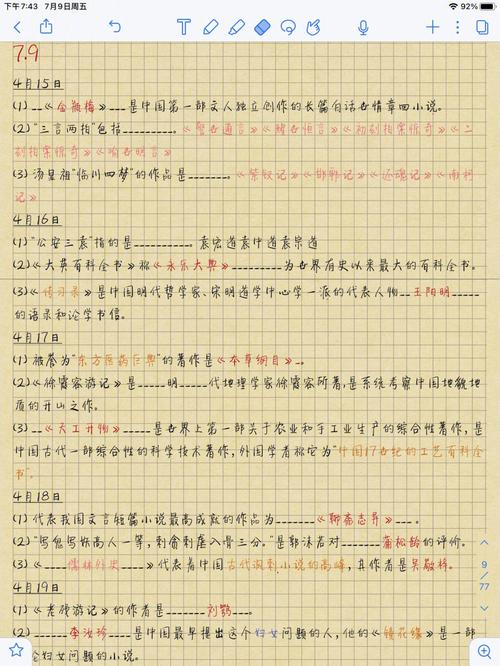 下午7:43 7月9日周五
92%
7.9
4月15日
(1)__《金瓶梅》___是中国第一部文人独立创作的长篇白话世情章回小说。
(2)"三言两拍"包括__________。《警世通言》《醒世恒言》《初刻拍案惊奇》《二
刻拍案惊奇》《喻世明言》
(3)汤显祖"临川四梦"的作品是_______。《紫钗记》《邯郸记》《还魂记》《南柯
记》
4月16日
(1)"公安三袁"指的是__________。袁宏道袁中道袁宗道
(2)《大英百科全书》称《永乐大典》_________为世界有史以来最大的百科全书。
(3)《传习录》是中国明代哲学家、宋明道学中心学一派的代表人物__王阳明_____
的语录和论学书信。
4月17日
(1)被誉为"东方医药巨典"的著作是《本草纲目》_。
(2)《徐霞客游记》是_____明_____代地理学家徐霞客所著,是系统考察中国地貌地
质的开山之作。
(3)__《天工开物》______是世界上第一部关于农业和手工业生产的综合性著作,是
中国古代一部综合性的科学技术著作,外国学者称它为"中国17世纪的工艺百科全
书"。
4月18日
(1)代表我国文言短篇小说最高成就的作品为_______《聊斋志异》___。
(2)"写鬼写妖高人一等,刺贪刺虐入骨三分。"是郭沫若对_______蒲松龄的评价。
(3)《___儒林外史____》代表着中国古代讽刺小说的高峰,其作者是吴敬梓。
4月19日
(1)《老残游记》的作者是_______刘鹗___。
(2)______李汝珍____是中国最早提出这个妇女问题的人,他的《镜花缘》是一部
论妇女问题的小说。
9
77